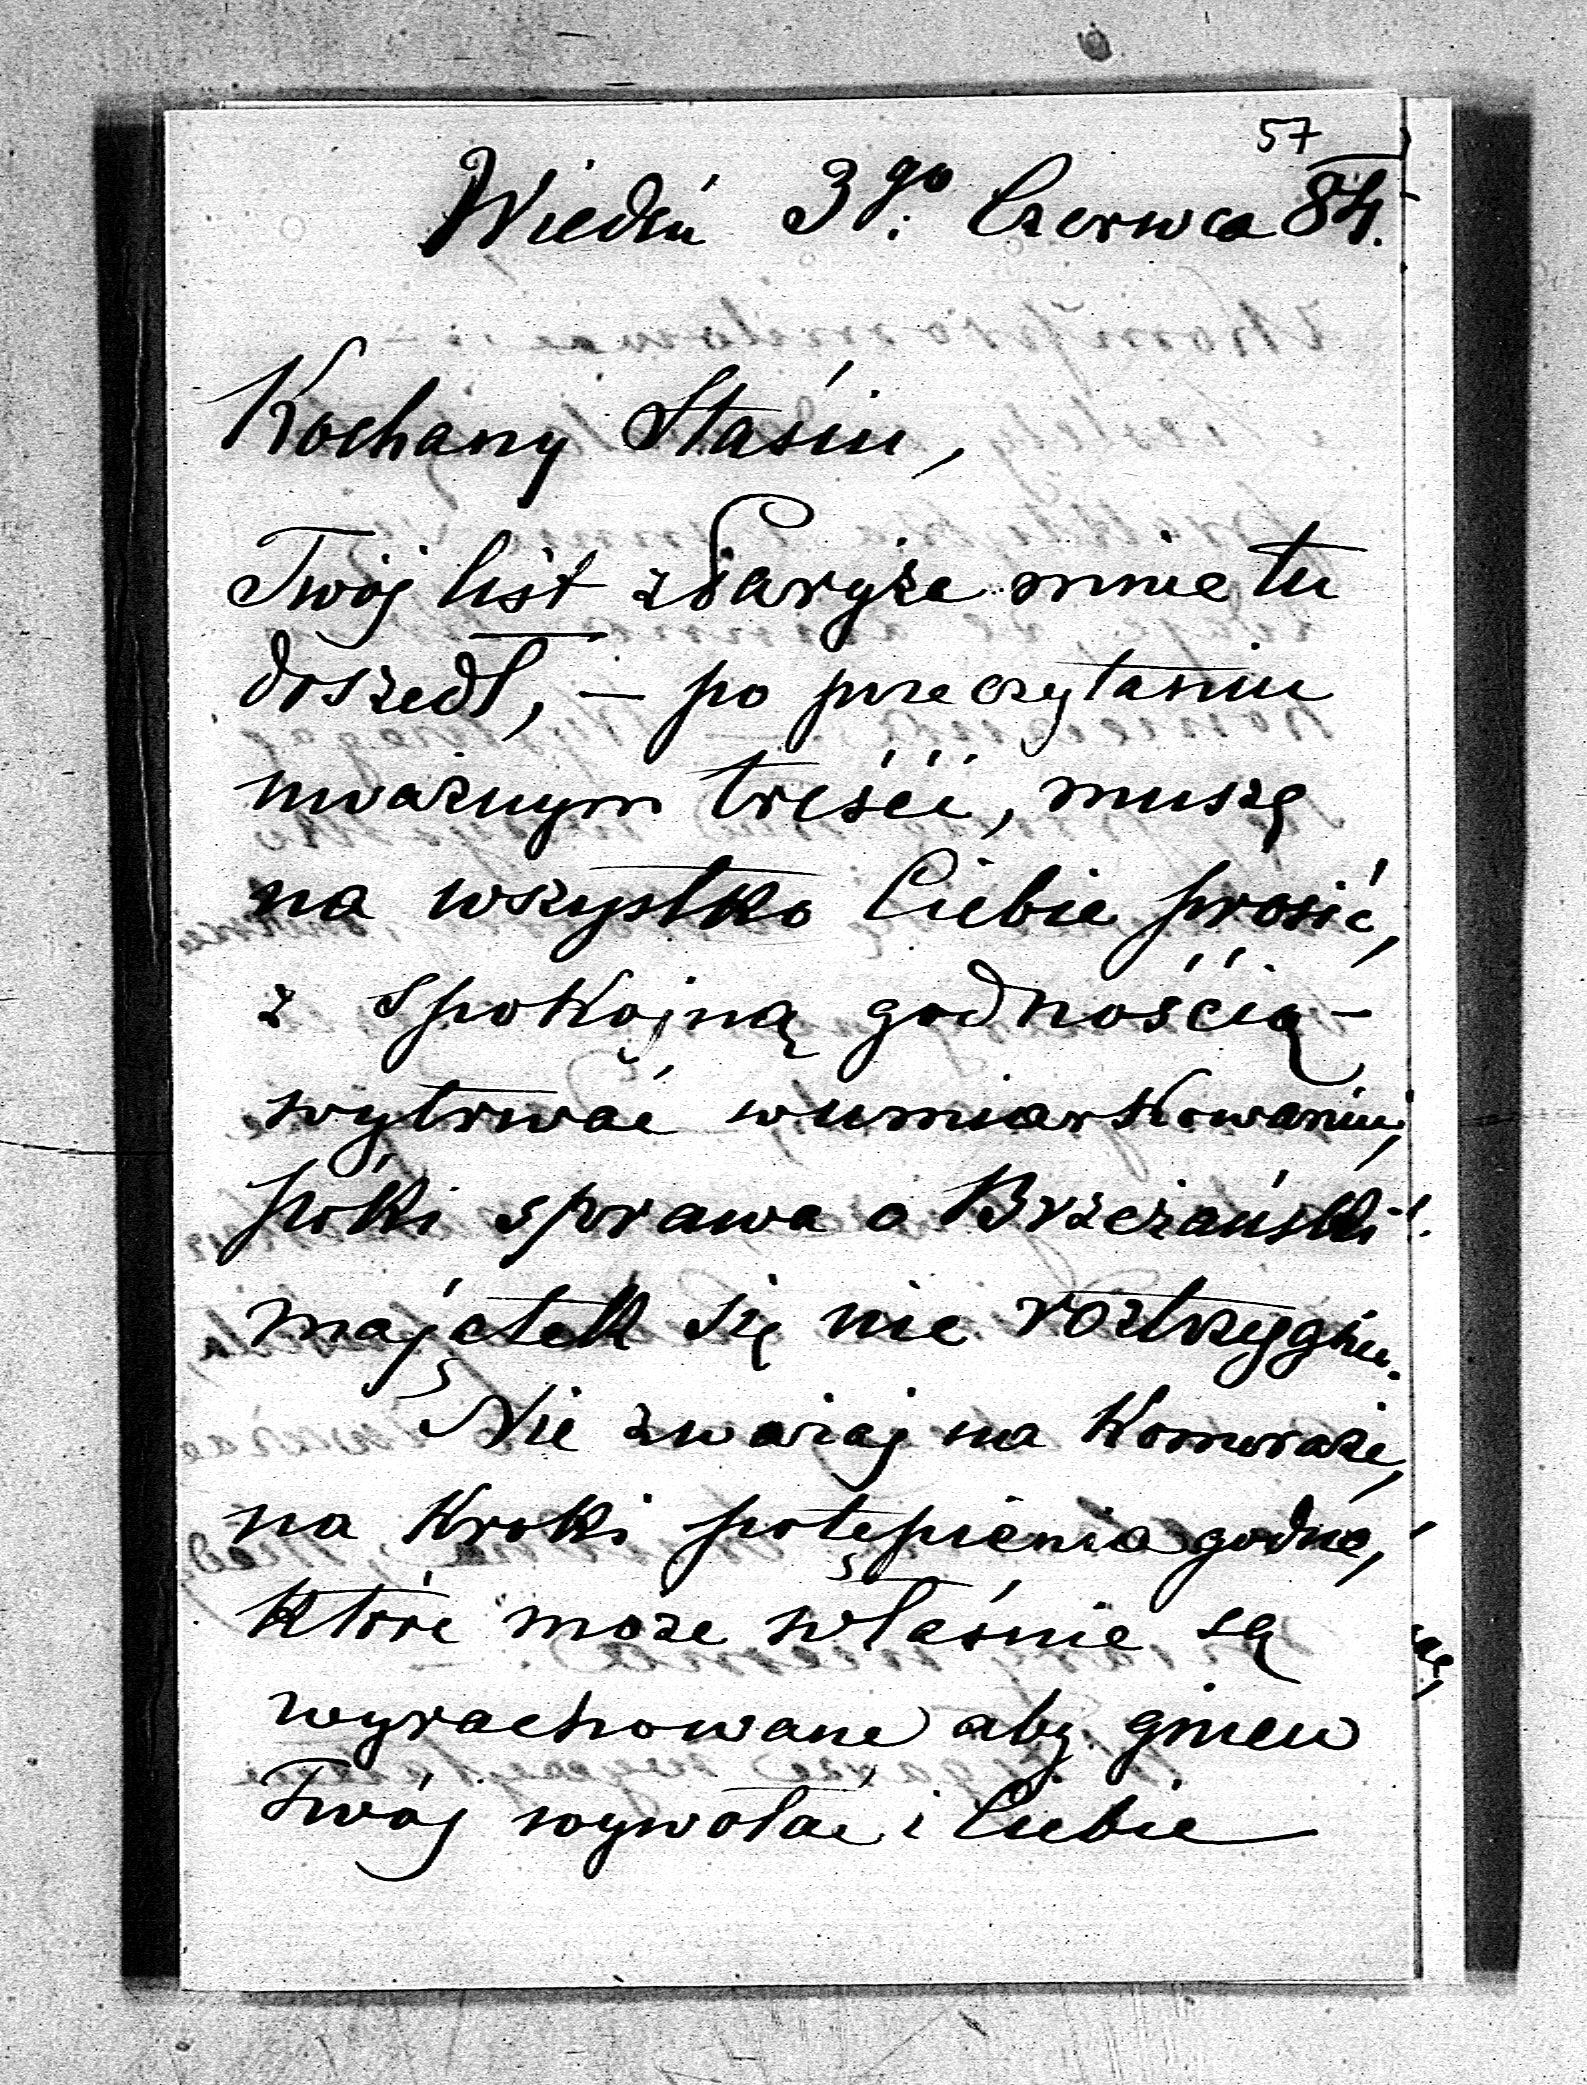 57
Wiedeń 3go. Czerwca 84.
Kochany Stasiu,
Twój list z Paryża mnie tu
doszedł, – po przeczytaniu
uważnym treśći, muszę
na wszystko Ciebie prosić,
z spokojną godnośćią –
wytrwać w umiarkowaniu,
póki sprawa o Brzeżański
majątek się nie roztrzygnie.
Nie zważaj na Komeraże,
na Kroki potępienia godne,
które może właśnie są
wyrachowane aby gniew
Twój wywołać i Ciebie